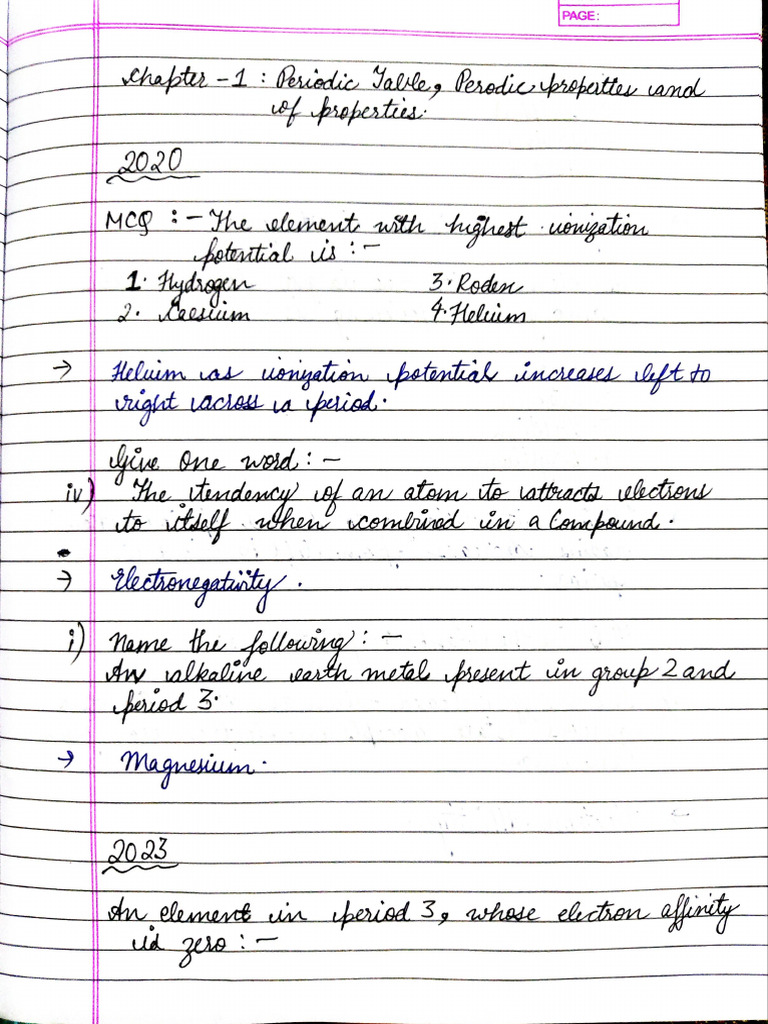 PAGE:
Chapter - 1 : Periodic Table, Perodic properties and
of properties.
2020
MCQ :- The element with highest ionization
potential is :-
1. Hydrogen 3. Roden
2. Ceesium 4. Helium
→ Helium as ionization potential increases left to
right across a period.
Give One word : -
iv) The tendency of an atom to attracts electrons
to itself when combined in a Compound.
→ Electronegativity.
i) Name the following : -
An alkaline earth metal present in group 2 and
period 3.
→ Magnesium.
2023
An element in period 3, whose electron affinity
is zero : -